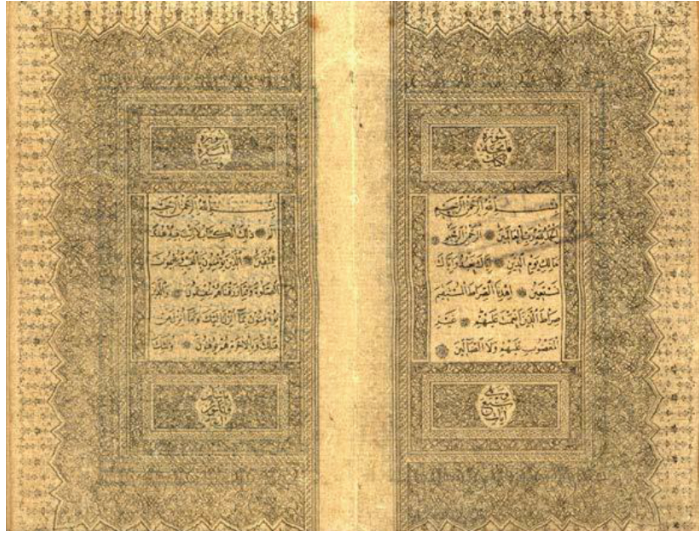 سورة
فاتحة
الكتاب
بسم الله الرحمن الرحيم
الحمد لله رب العالمين الرحمن الرحيم
مالك يوم الدين إياك نعبد وإياك
نستعين اهدنا الصراط المستقيم
صراط الذين أنعمت عليهم غير
المغضوب عليهم ولا الضالين
وهي
سبع
آيات
سورة
بسم الله الرحمن الرحيم
الم ذلك الكتاب لا ريب فيه هدى
للمتقين الذين يؤمنون بالغيب ويقيمون
الصلوة ومما رزقناهم ينفقون والذين
يؤمنون بما أنزل إليك وما أنزل من
قبلك وبالآخرة هم يوقنون أولئك